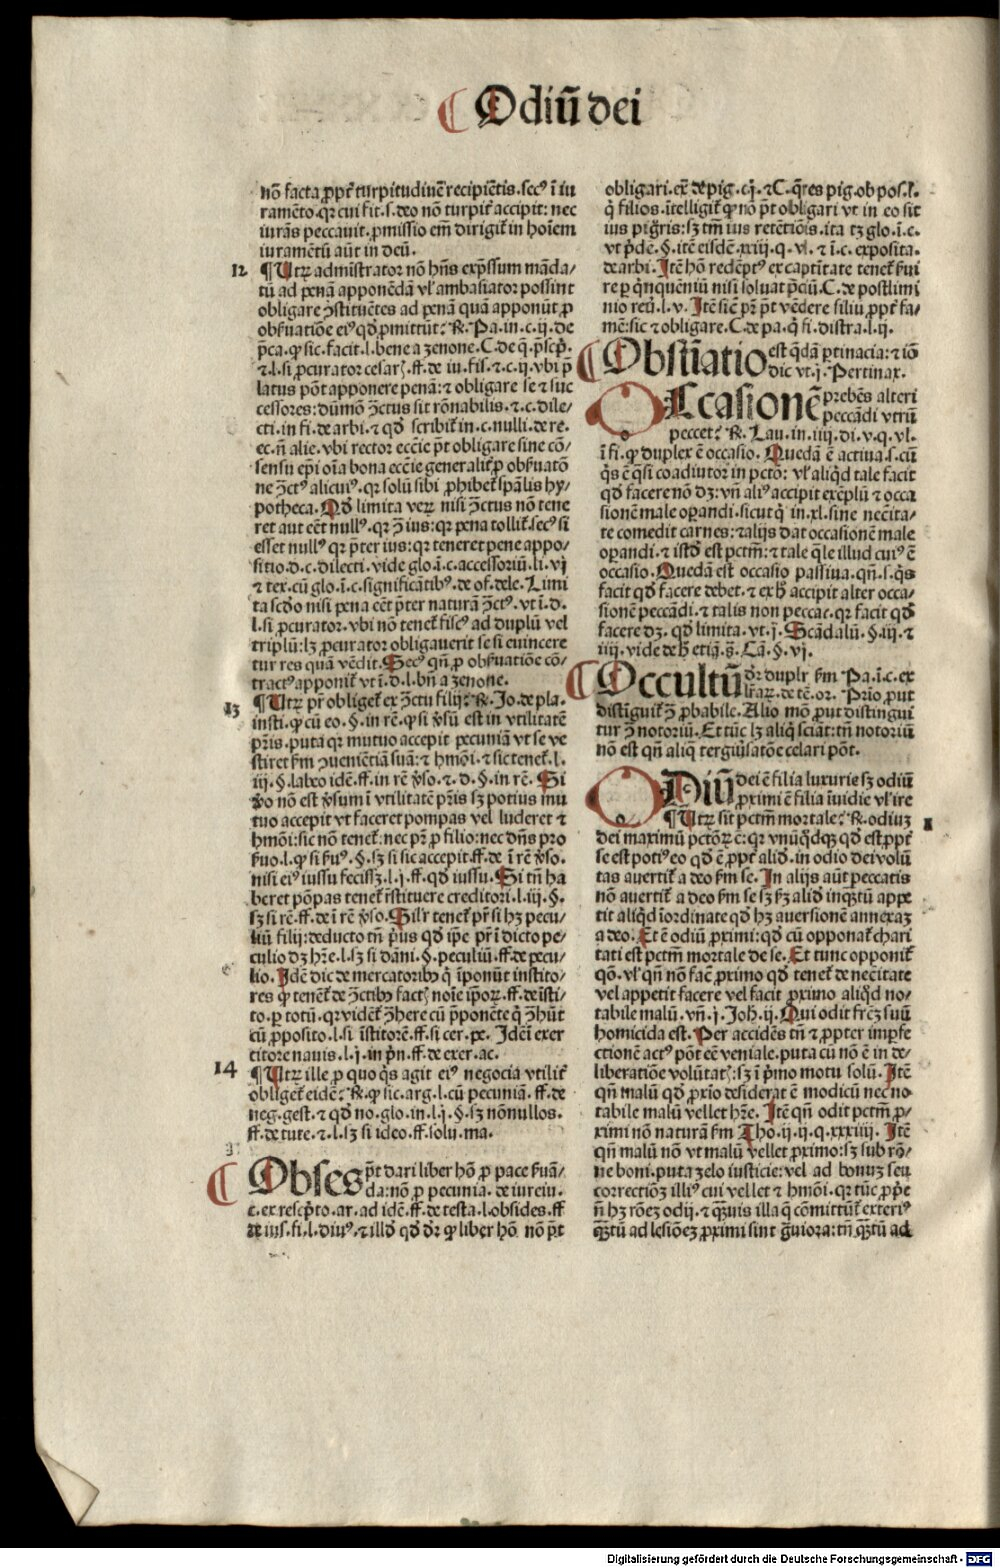 Odiū dei
nō facta ꝓpt̄ turpitudinē recipiētis. secꝰ ī iu
ramēto. qꝛ cui fit. s. deo nō turpit̄ accipit: nec
iurās peccauit. ꝓmissio em̄ dirigit̄ in hoīem
iuramētū aūt in deū.
12 ¶ Utꝝ admīstrator nō hn̄s exp̄ssum māda/
tū ad penā apponēdā vl' ambasiator possint
obligare ꝯstituētes ad penā quā apponūt ꝓ
obẜuatiōe eiꝰ qd̄ ꝓmittūt: R̄. Pa. in. c. ij. de
p̄ca. ꝙ sic. facit. l. bene a zenone. C. de q̄. p̄scp̄.
⁊. l. si ꝓcurator cesarꝭ. ff. de iu. fis. ⁊. c. ij. vbi p̄
latus pōt apponere penā: ⁊ obligare se ⁊ suc
cessores: dūmō ꝯctus sit rōnabilis. ⁊. c. dile/
cti. in fi. de arbi. ⁊ qd̄ scribit̄ in. c. nulli. de re.
ec. n̄ alie. vbi rector eccīe p̄t obligare sine cō/
sensu ep̄i oīa bona eccīe generalit̄ ꝓ obẜuatō
ne ꝯctꝰ alicuiꝰ. qꝛ solū sibi ꝓhibet̄ sp̄alis hy/
potheca. Qd̄ limita veꝝ nisi ꝯctus nō tene
ret aut eēt nullꝰ. qꝛ ꝯ ius: qꝛ pena tollit̄. secꝰ si
esset nullꝰ qꝛ p̄ter ius: qꝛ teneret pene appo/
sitio. d. c. dilecti. vide glo. ī. c. accessoriū. li. vj
⁊ tex. cū glo. ī. c. significātibꝰ. de of. dele. Limi
ta scd̄o nisi pena eēt p̄ter naturā ꝯctꝰ. vt ī. d.
l. si ꝓcurator. vbi nō tenet̄ fiscꝰ ad duplū vel
triplū: lꝫ ꝓcurator obligauerit se si euincere
tur res quā vēdit. Secꝰ qn̄ ꝓ obẜuatiōe cō/
tractꝰ apponit̄ vt ī. d. l. bn̄ a zenone.
13 ¶ Utꝝ pr̄ obliget̄ ex ꝯctu filij: R̄. Jo. de pla.
insti. ꝙ cū eo. §. in rē. ꝙ si v̄sū est in vtilitatē
pr̄is. puta qꝛ mutuo accepit pecuniā vt se ve
stiret ẜm ꝯueniētiā suā: ⁊ hmōi. ⁊ sic tenet̄. l.
iij. §. labeo idē. ff. in rē v̄so. ⁊. d. §. in rē. Si
v̄o nō est v̄sum ī vtilitatē pr̄is sꝫ potius mu
tuo accepit vt faceret pompas vel luderet ⁊
hmōi: sic nō tenet̄. nec pr̄ ꝓ filio: nec dn̄s pro
ẜuo. l. ꝙ si ẜuꝰ. §. sꝫ si sic accepit. ff. de ī rē v̄so.
nisi eiꝰ iussu fecissꝫ. l. j. ff. qd̄ iussu. Si tn̄ ha
beret pōpas tenet̄ r̄stituere creditori. l. iij. §.
sꝫ si rē. ff. de ī rē v̄so. Sil'r tenet̄ pr̄ si hꝫ pecu/
liū filij: deducto tn̄ p̄us qd̄ ip̄e pr̄ ī dicto pe/
culio dꝫ hr̄e. l. sꝫ si dāni. §. peculiū. ff. de pecu/
lio. Idē dic de mercatoribꝰ q̄ īponūt instito/
res ꝙ tenēt̄ de ꝯctibꝰ factꝭ noīe ip̄oꝝ. ff. de īsti/
to. ꝑ totū. qꝛ vidēt̄ ꝯhere cū p̄ponēte q̄ ꝯhūt
cū ꝓposito. l. si īstitorē. ff. si cer. pe. Idē ī exer
citore nauis. l. j. in pn̄. ff. de exer. ac.
14 ¶ Utꝝ ille ꝓ quo q̄s agit eiꝰ negocia vtilit̄
obliget̄ eidē: R̄. ꝙ sic. arg. l. cū pecuniā. ff. de
neg. gest. ⁊ qd̄ no. glo. in. l. j. §. sꝫ nōnullos.
ff. de tute. ⁊. l. sꝫ si ideo. ff. solu. ma.
Obses p̄t dari liber hō ꝓ pace ẜuā/
da: nō ꝓ pecunia. de iureiu.
c. ex rescp̄to. ar. ad idē. ff. de testa. l. obsides. ff
de ius. fi. l. diuꝰ. ⁊ illd̄ qd̄ dr̄ ꝙ liber hō nō p̄t
obligari. ex̄ de pig. c. j. ⁊ C. q̄ res pig. ob pos. l.
q̄ filios. ītelligit̄ ꝙ nō p̄t obligari vt in eo sit
ius pigr̄is: sꝫ tm̄ ius retētiōis. ita tꝫ glo. ī. c.
vt p̄de. §. itē eisdē. xiij. q. vl. ⁊ ī. c. exposita.
de arbi. Itē hō redēptꝰ ex captītate tenet̄ ẜui
re ꝑ q̄nqueniū nisi soluat p̄ciū. C. de postlimi
nio reu̅. l. v. Itē sic̄ pr̄ p̄t vēdere filiū ꝓpt̄ fa/
mē: sic ⁊ obligare. C. de pa. q̄ fi. distra. l. ij.
Obstīatio est q̄dā ꝑtinacia: ⁊ iō
dic vt. j. Pertinax.
Occasionē prebēs alteri
peccādi vtrū
peccet: R̄. Lau. in. iiij. di. v. q. vl.
ī fi. ꝙ duplex ē occasio. Quedā ē actiua. s. cū
q̄s ē q̄si coadiutor in pctō: vl' aliqd̄ tale facit
qd̄ facere nō dꝫ: vn̄ aliꝰ accipit exēplū ⁊ occa
sionē male operandi. sicut q̄ in. xl. sine necīta/
te comedit carnes: ⁊ alijs dat occasionē male
oꝑandi. ⁊ istd̄ est pctm̄: ⁊ tale q̄le illud cuiꝰ ē
occasio. Quedā est occasio passiua. qn̄. s. q̄s
facit qd̄ facere debet. ⁊ ex hͦ accipit alter occa/
sionē peccādi. ⁊ talis non peccat. qꝛ facit qd̄
facere dꝫ. qd̄ limita. vt. j. Scādalū. §. iij. ⁊
iiij. vide de hͦ etiā. s̄. Cā. §. vj.
Occultū dr̄ duplr̄ ẜm Pa. ī. c. ex
lr̄aꝝ. de tē. or. Prīo ꝓut
distīguit̄ ꝯ ꝓbabile. Alio mō ꝓut distingui
tur ꝯ notoriū. Et tūc lꝫ aliq̄ sciāt: tn̄ notoriū
nō est qn̄ aliq̄ tergiūsatōe celari pōt.
Odiū dei ē filia luxurie sꝫ odiū
ꝓximi ē filia īuidie vl' ire
1 ¶ Utꝝ sit pctm̄ mortale: R̄. odiuꝫ
dei maximū pctōꝝ ē: qꝛ vnūqd̄qꝫ qd̄ est ꝓpt̄
se est potiꝰ eo qd̄ ē ꝓpt̄ alid̄. in odio dei volū
tas auertit̄ a deo ẜm se. In alijs aūt peccatis
nō auertit̄ a deo ẜm se sꝫ ẜꝫ alid̄ inqꝫtū appe
tit aliqd̄ īordinate qd̄ hꝫ auersionē annexaꝫ
a deo. Et ē odiū ꝓximi: qd̄ cū opponat̄ chari
tati est pctm̄ mortale de se. Et tunc opponit̄
qō. vl' qn̄ nō facē ꝓximo qd̄ tenet̄ de necītate
vel appetit facere vel facit ꝓximo aliqd̄ no/
tabile malū. vn̄. j. Joh. ij. Qui odit fr̄eꝫ suū
homicida est. Per accidēs tn̄ ⁊ ꝓpter imꝑfe
ctionē actꝰ pōt eē veniale. puta cū nō ē in de/
liberatiōe volūtatꝭ: sꝫ ī p̄mo motu solū. Itē
qn̄ malū qd̄ ꝓxīo desiderat ē modicū nec no/
tabile malū vellet hr̄e. Itē qn̄ odit pctm̄ ꝓ/
ximi nō naturā ẜm Tho. ij. ij. q. xxxiiij. Itē
qn̄ malū nō vt malū vellet ꝓximo: sꝫ sub rō/
ne boni. puta zelo iusticie: vel ad bonuꝫ seu
correctiōꝫ illiꝰ cui vellet ⁊ hmōi. qꝛ tūc ꝓpͥe
n̄ hꝫ rōeꝫ odij. ⁊ qꝫuis illa q̄ cōmittūt̄ exteriꝰ
qꝫtū ad lesiōeꝫ ꝓximi sint ḡuiora: tn̄ qꝫtū ad
Digitalisierung gefördert durch die Deutsche Forschungsgemeinschaft - DFG